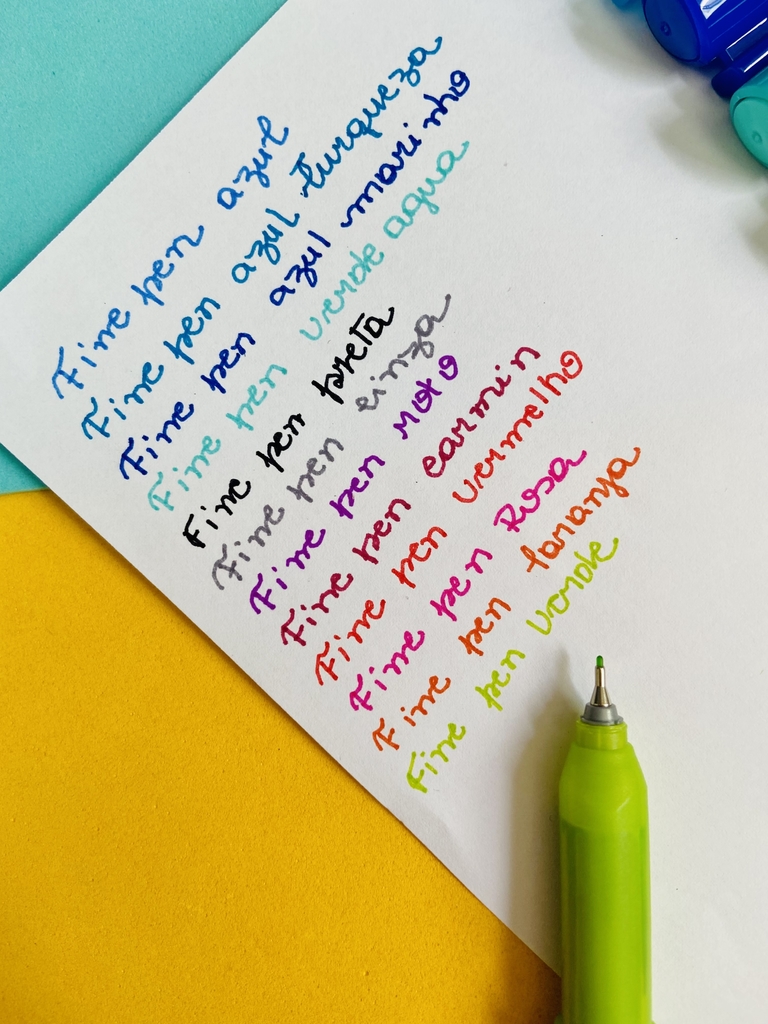 Fine pen azul
Fine pen azul turqueza
Fine pen azul marinho
Fine pen verde agua
Fine pen preta
Fine pen cinza
Fine pen roxo
Fine pen carmin
Fine pen vermelho
Fine pen Rosa
Fine pen laranja
Fine pen verde